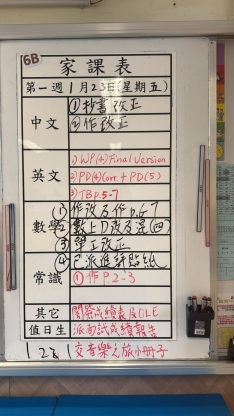 6B
家課表
第一週 1月23日(星期五)
中文
①抄書改正
②作改正
英文
1) WP(4) Final Version
2) PD(4) Corr + PD(5)
3) TB p.5-7
數學
① 作改及作p.6-7
② 數上D改及選(四)
③ 單工改正
④ 已派進評貼紙
常識
① 作P.2-3
其它
閱簽成績表及OLE
值日生
派面試成績報告
1 2 8 1 交音樂之旅小冊子